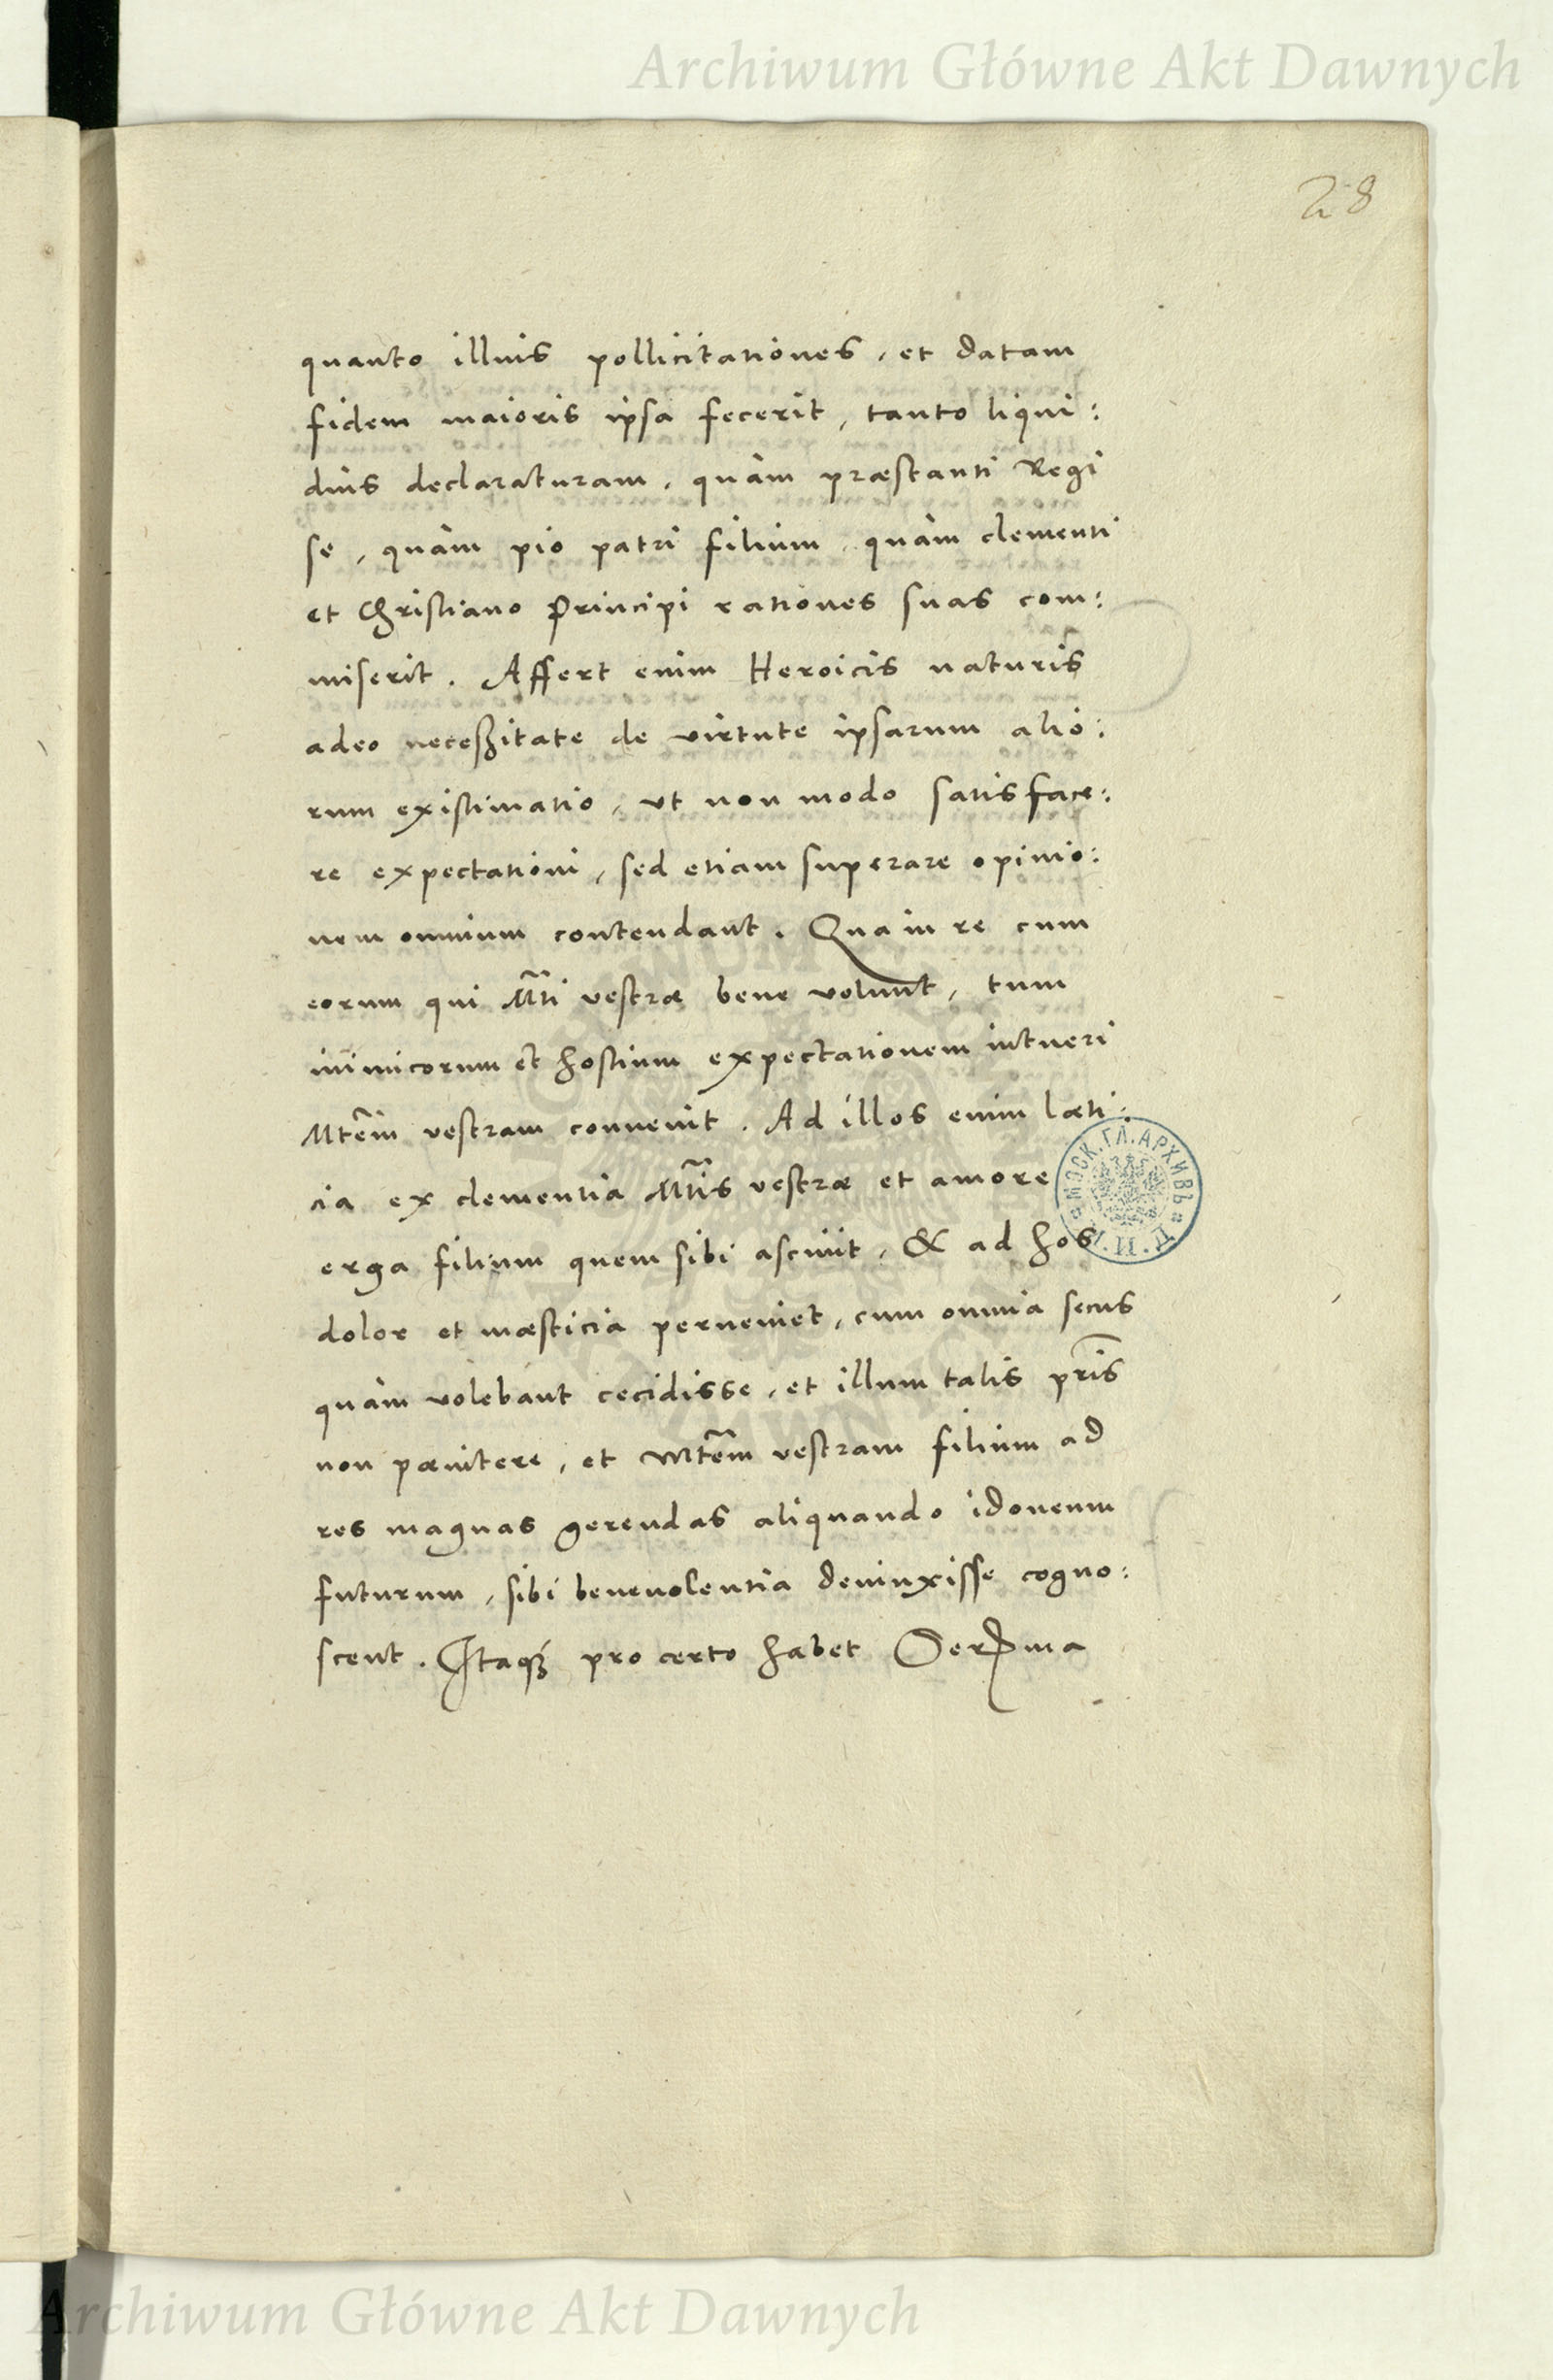 Archiwum Główne Akt Dawnych
28
quanto illius pollicitationes, et datam
fidem maioris ipsa fecerit, tanto liqui:
dius declaraturam, quàm præstanti Regi
se, quàm pio patri filium, quàm clementi
et Christiano Principi rationes suas com:
miserit. Affert enim Heroicis naturis
adeo necessitate de virtute ipsarum alio:
rum existimatio, ut non modo satisface:
re expectationi, sed etiam superare opinio:
nem omnium contendant. Qua in re cum
eorum qui Mti vestræ bene volunt, tum
inimicorum et hostium expectationem intueri
Mtem vestram convenit. Ad illos enim læti:
cia ex clementia Mtis vestræ et amore
erga filium quem sibi asciuit, & ad hos
dolor et mæsticia perveniet, cum omnia secus
quàm volebant cecidisse, et illum talis pris
non pœnitere, et Mtem vestram filium ad
res magnas gerendas aliquando idoneum
futurum, sibi benevolentia devinxisse cogno:
scent. Itaq3 pro certo habet Serma
МОСК. ГЛ. АРХИВЪ
Archiwum Główne Akt Dawnych